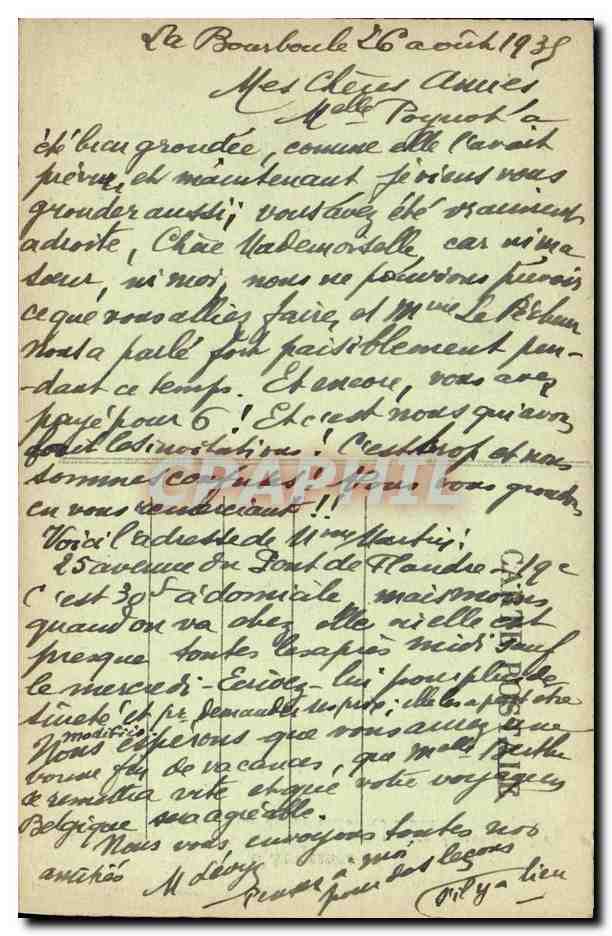 La Bourboule 26 août 1935
Mes Chères Amies
Melle Poynot a
été bien grondée, comme elle l'avait
prévu, et maintenant je viens vous
gronder aussi; vous avez été vraiment
adroite, Chère Mademoiselle, car ni ma
sœur, ni moi, nous ne pouvions prévoir
ce que vous alliez faire, et Mme Le Pêcheur
nous a parlé fort paisiblement pen-
-dant ce temps. Et encore, vous avez
payé pour 6! Et c'est nous qui avons
fait les invitations! C'est trop et nous
sommes confuses! Nous vous grondons
en vous remerciant!!
Voici l'adresse de Mme Martin:
25 avenue du Pont de Flandre - 19e
C'est 30f à domicile, mais moins
quand on va chez elle ni elle est
presque toutes les après midi sauf
le mercredi - Ecrivez-lui pour plus de
sûreté et pr demander ses prix; elle les a peut être
modifiés.
Nous espérons que vous aurez une
bonne fin de vacances, que Melle Berthe
se remettra vite et que votre voyage en
Belgique sera agréable.
Nous vous envoyons toutes nos
amitiés
M Lévy
Penser à moi
pour des leçons
s'il y a lieu
CARTE POSTALE
CPAPHIL